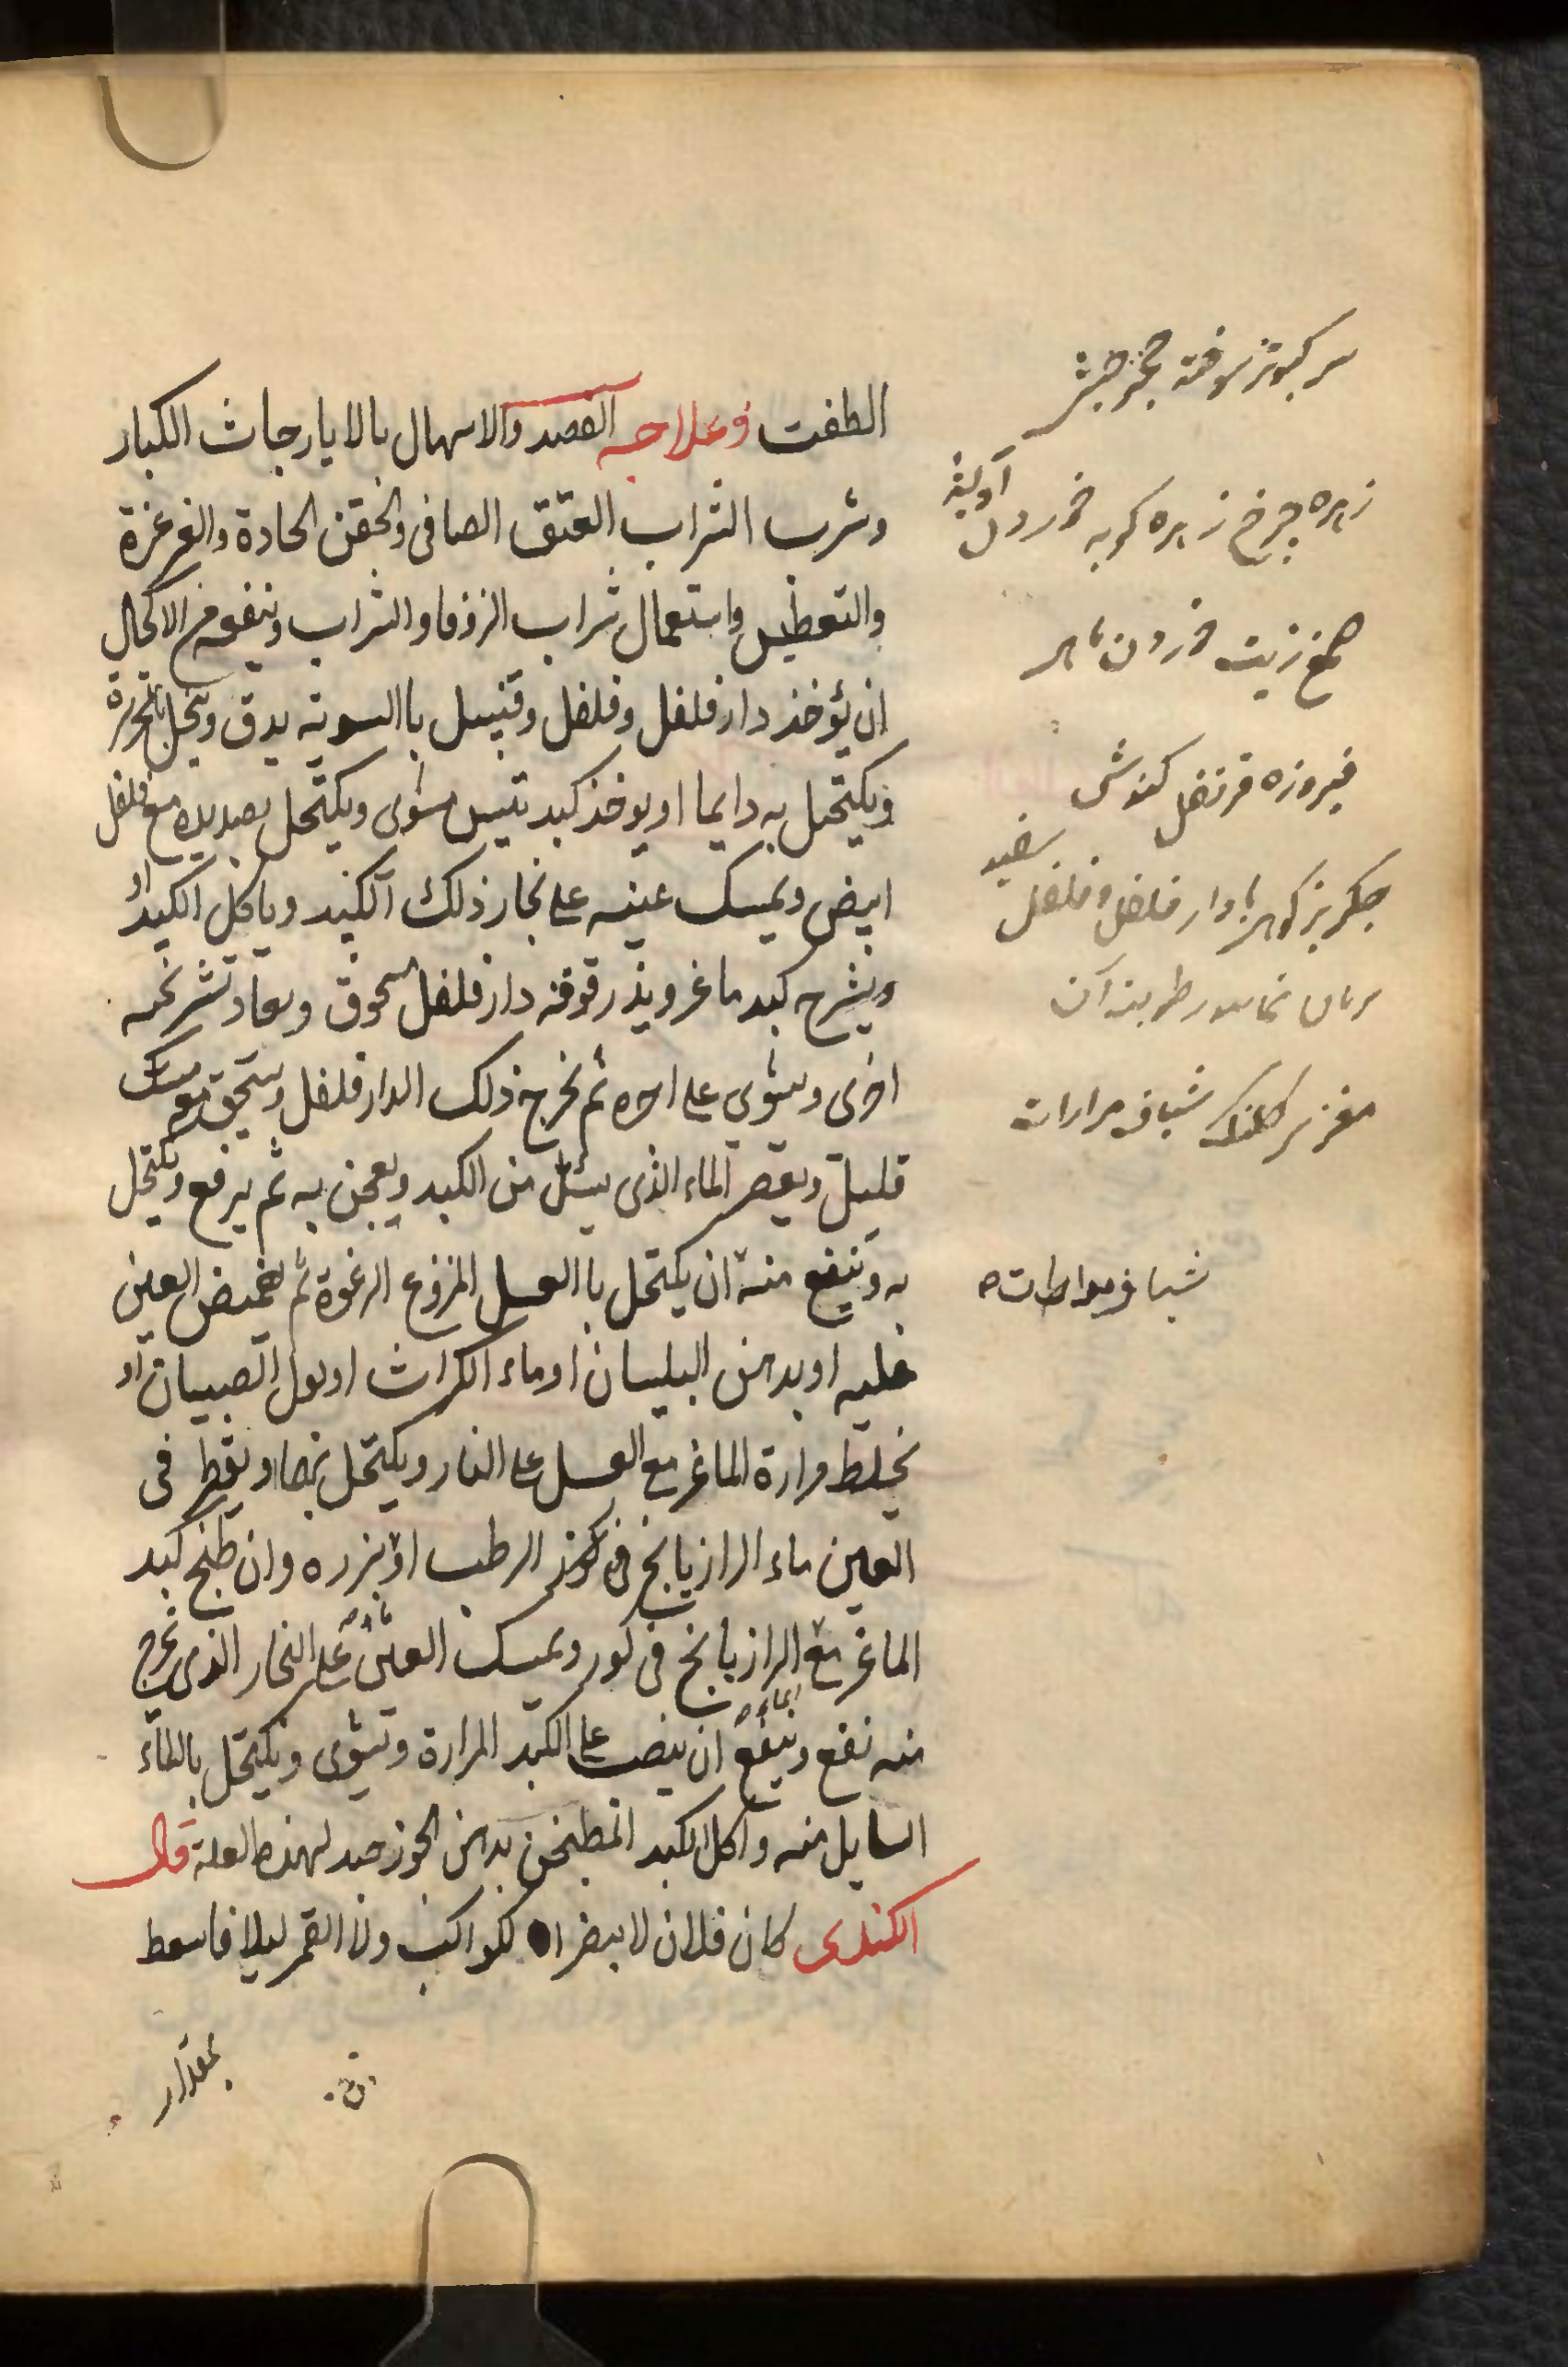 الطفت وعلاجه الفصد والاسهال بالايارجات الكبار
وشرب الشراب العتق الصافى والحقن الحادة والغرغرة
والتعطيس واستعمال شراب الزوفا والشراب وينفعه من الاكحال
ان يؤخذ دارفلفل وفلفل وقنبيل باالسويه يدق وينخل بالحريرة
ويكتحل به دايما او يوخذ كبد تيس يشوى ويكتحل بصديده مع فلفل
ابيض ويمسك عينيه على بخار ذلك الكبد وياكل الكبد او
ويشرح كبد ماعز ويذر فوقه دارفلفل مسحوق ويعاد تشريحه
اخرى ويشوى على اجره ثم يخرج ذلك الدارفلفل ويسحق معه مسك
قليل ويعصر الماء الذى يسيل من الكبد ويعجن به ثم يرفع ويكتحل
به وينفع منه ان يكتحل باالعسل المنزوع الرغوة ثم يغمض العين
عليه او بدهن البلسان او ماء الكراث او بول الصبيان او
يخلط مرارة الماعز مع العسل على النار ويكتحل بها ويقطر فى
العين ماء الرازيانج الرطب او بزره وان طبخ كبد
الماعز مع الرازيانج فى كوز ويمسك العين على البخار الذى يخرج
منه نفع وينفع ان يصب على الكبد المرارة وتشوى ويكتحل بالماء
السايل منه واكل الكبد المطبخن بدهن الجوز جيد لهذه العلة قال
الكندى كان فلان لا يبصر الكواكب ولا القمر ليلا فاسعط
بمقدار
سر كبوتر سوخته
زهره چرخ زهره خردل
صمغ زيت
فيروزه قرنفل كندش
جكر بز دارفلفل وفلفل سفيد
رطوبت آن
مغز سر كلنك شياف مرارات
شياف